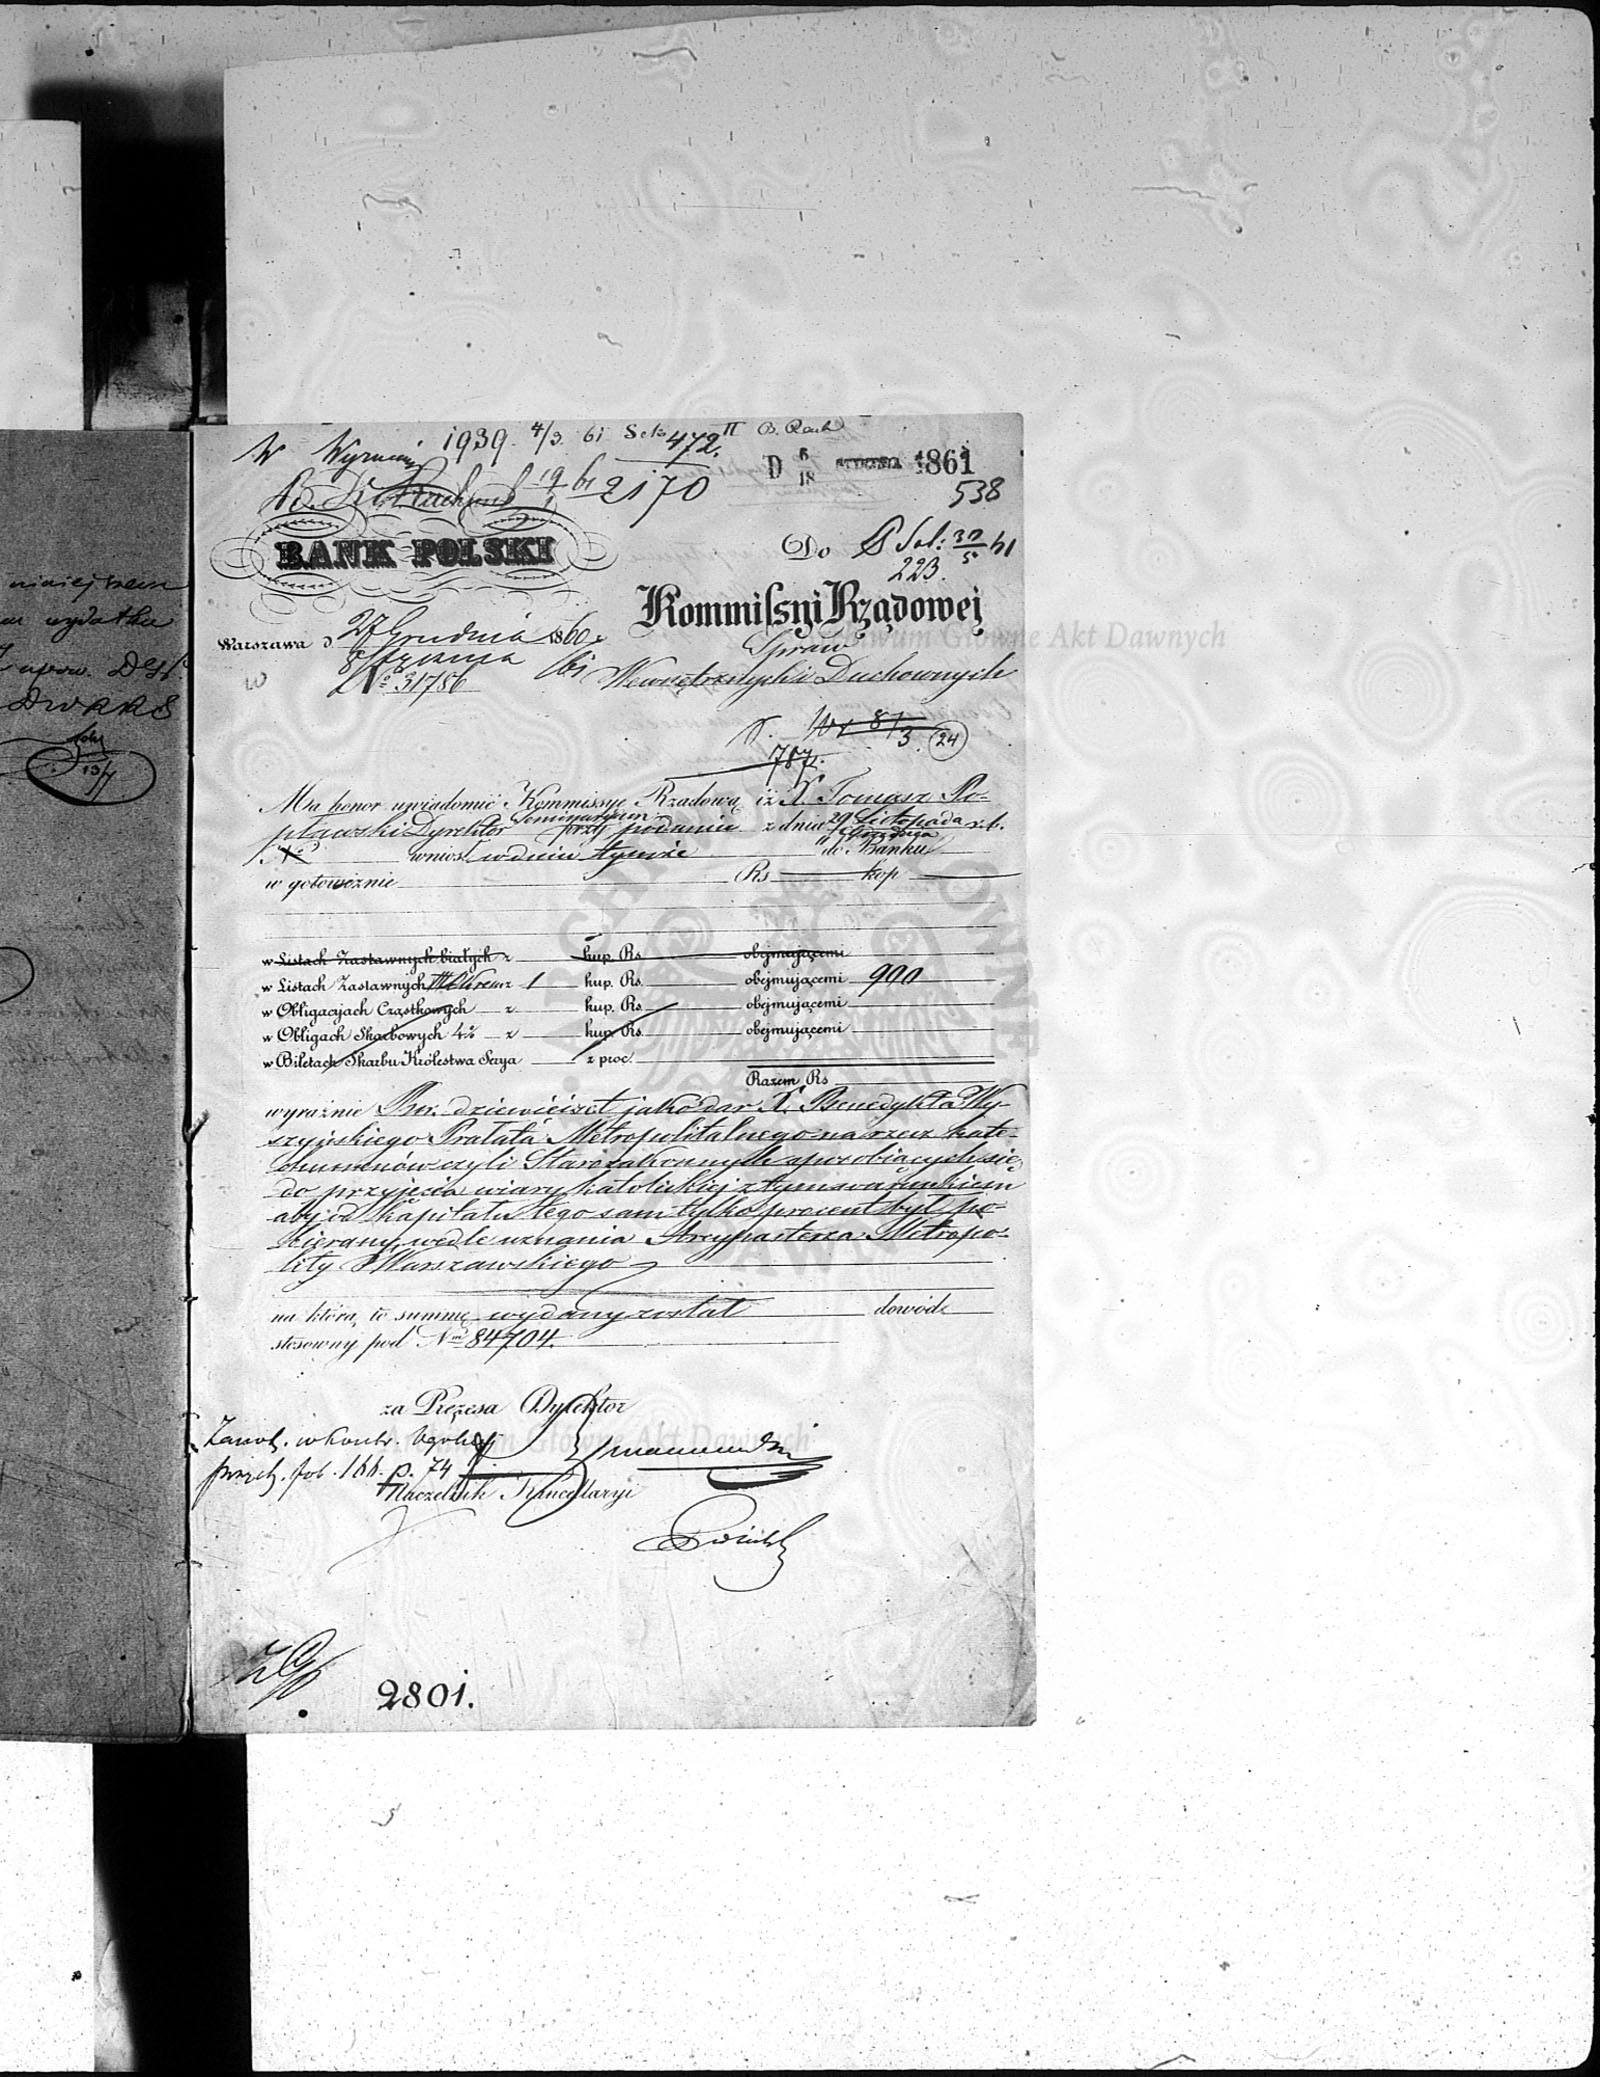 niniejszem
wydatku
upow.
W
1939. 4/3. 61 472. II
D 6/18 STYCZNIA 1861
2170
538
BANK POLSKI
Do
223.
Kommissyi Rządowej
Warszawa d 27 Grudnia 1860.
8 Stycznia 61
Spraw
Wewnętrznych i Duchownych
No 31786
Archiwum Główne Akt Dawnych
24
787.
Ma honor uwiadomić Kommissyę Rządową iż X. Tomasz Po-
pławski Dyrektor Seminaryum przy podaniu z dnia 29 Listopada r. b.
No wniósł w dniu tymże do Banku
w gotowiźnie Rs kop
w Listach Zastawnych białych z kup. Rs. obejmującemi
w Listach Zastawnych III Okresu z 1 kup. Rs. obejmującemi 900
w Obligacjach Cząstkowych z kup. Rs. obejmującemi
w Obligach Skarbowych 4% z kup. Rs. obejmującemi
w Biletach Skarbu Królestwa Serya z proc.
Razem Rs
wyraźnie Rsr. dziewięćset jako dar X. Benedykta Wy-
szyńskiego Prałata Metropolitalnego na rzecz kate-
chumenów czyli Starozakonnych sposobiących się
do przyjęcia wiary katolickiej z tym warunkiem
aby od kapitału tego sam tylko procent był po-
bierany, wedle uznania Arcypasterza Metropo-
lity Warszawskiego
na którą to summę wydany został dowód
stosowny pod Nm 84704.
za Prezesa Dyrektor
Archiwum Główne Akt Dawnych
p. 74
Naczelnik Kancellaryi
2801.